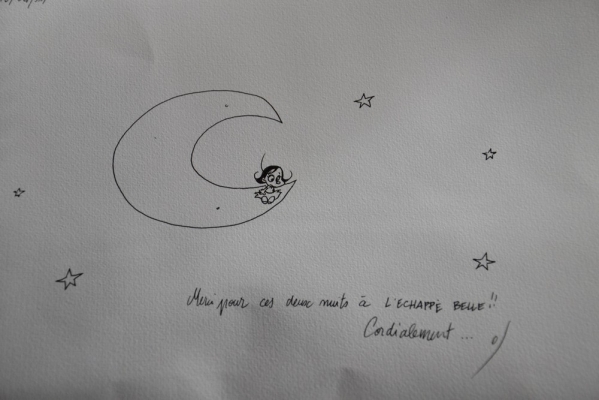 Merci pour ces deux nuits à L'ECHAPPÉ BELLE !!
Cordialement ...